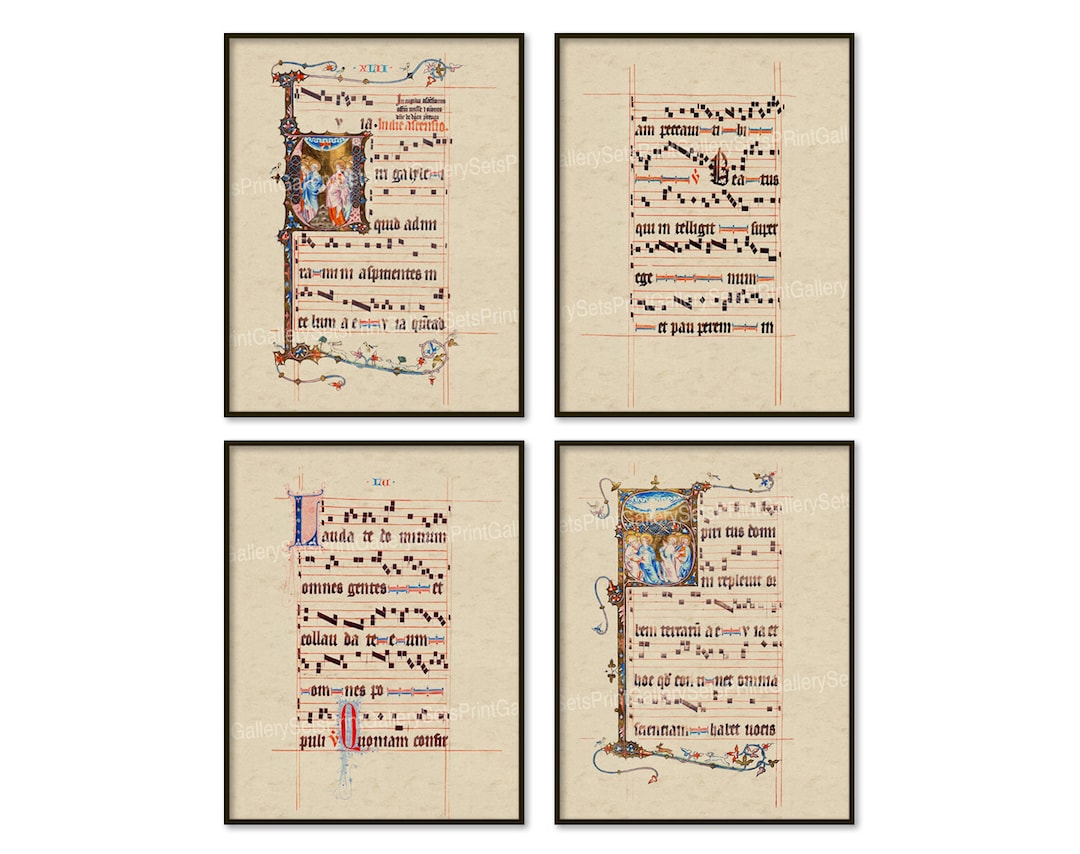 XLII
via. In die ascensio.
Viri galylei
quid admi
ramini aspicientes in
ce lum a e v ia q̃ead
am peccaui ti bi
v̄ Bea tus
qui in telligit super
ege num
et pau perem in
LII
Lauda te do minum
omnes gentes et
collau da te e um
om nes po
puli v̄ Quoniam confir
Spiri tus domi
ni repleuit or
bem terrarũ a e v ia et
hoc qd̄ con ti net omnia
scienciam habet uocis
GallerySetsPrintGallerySetsPrintGallery